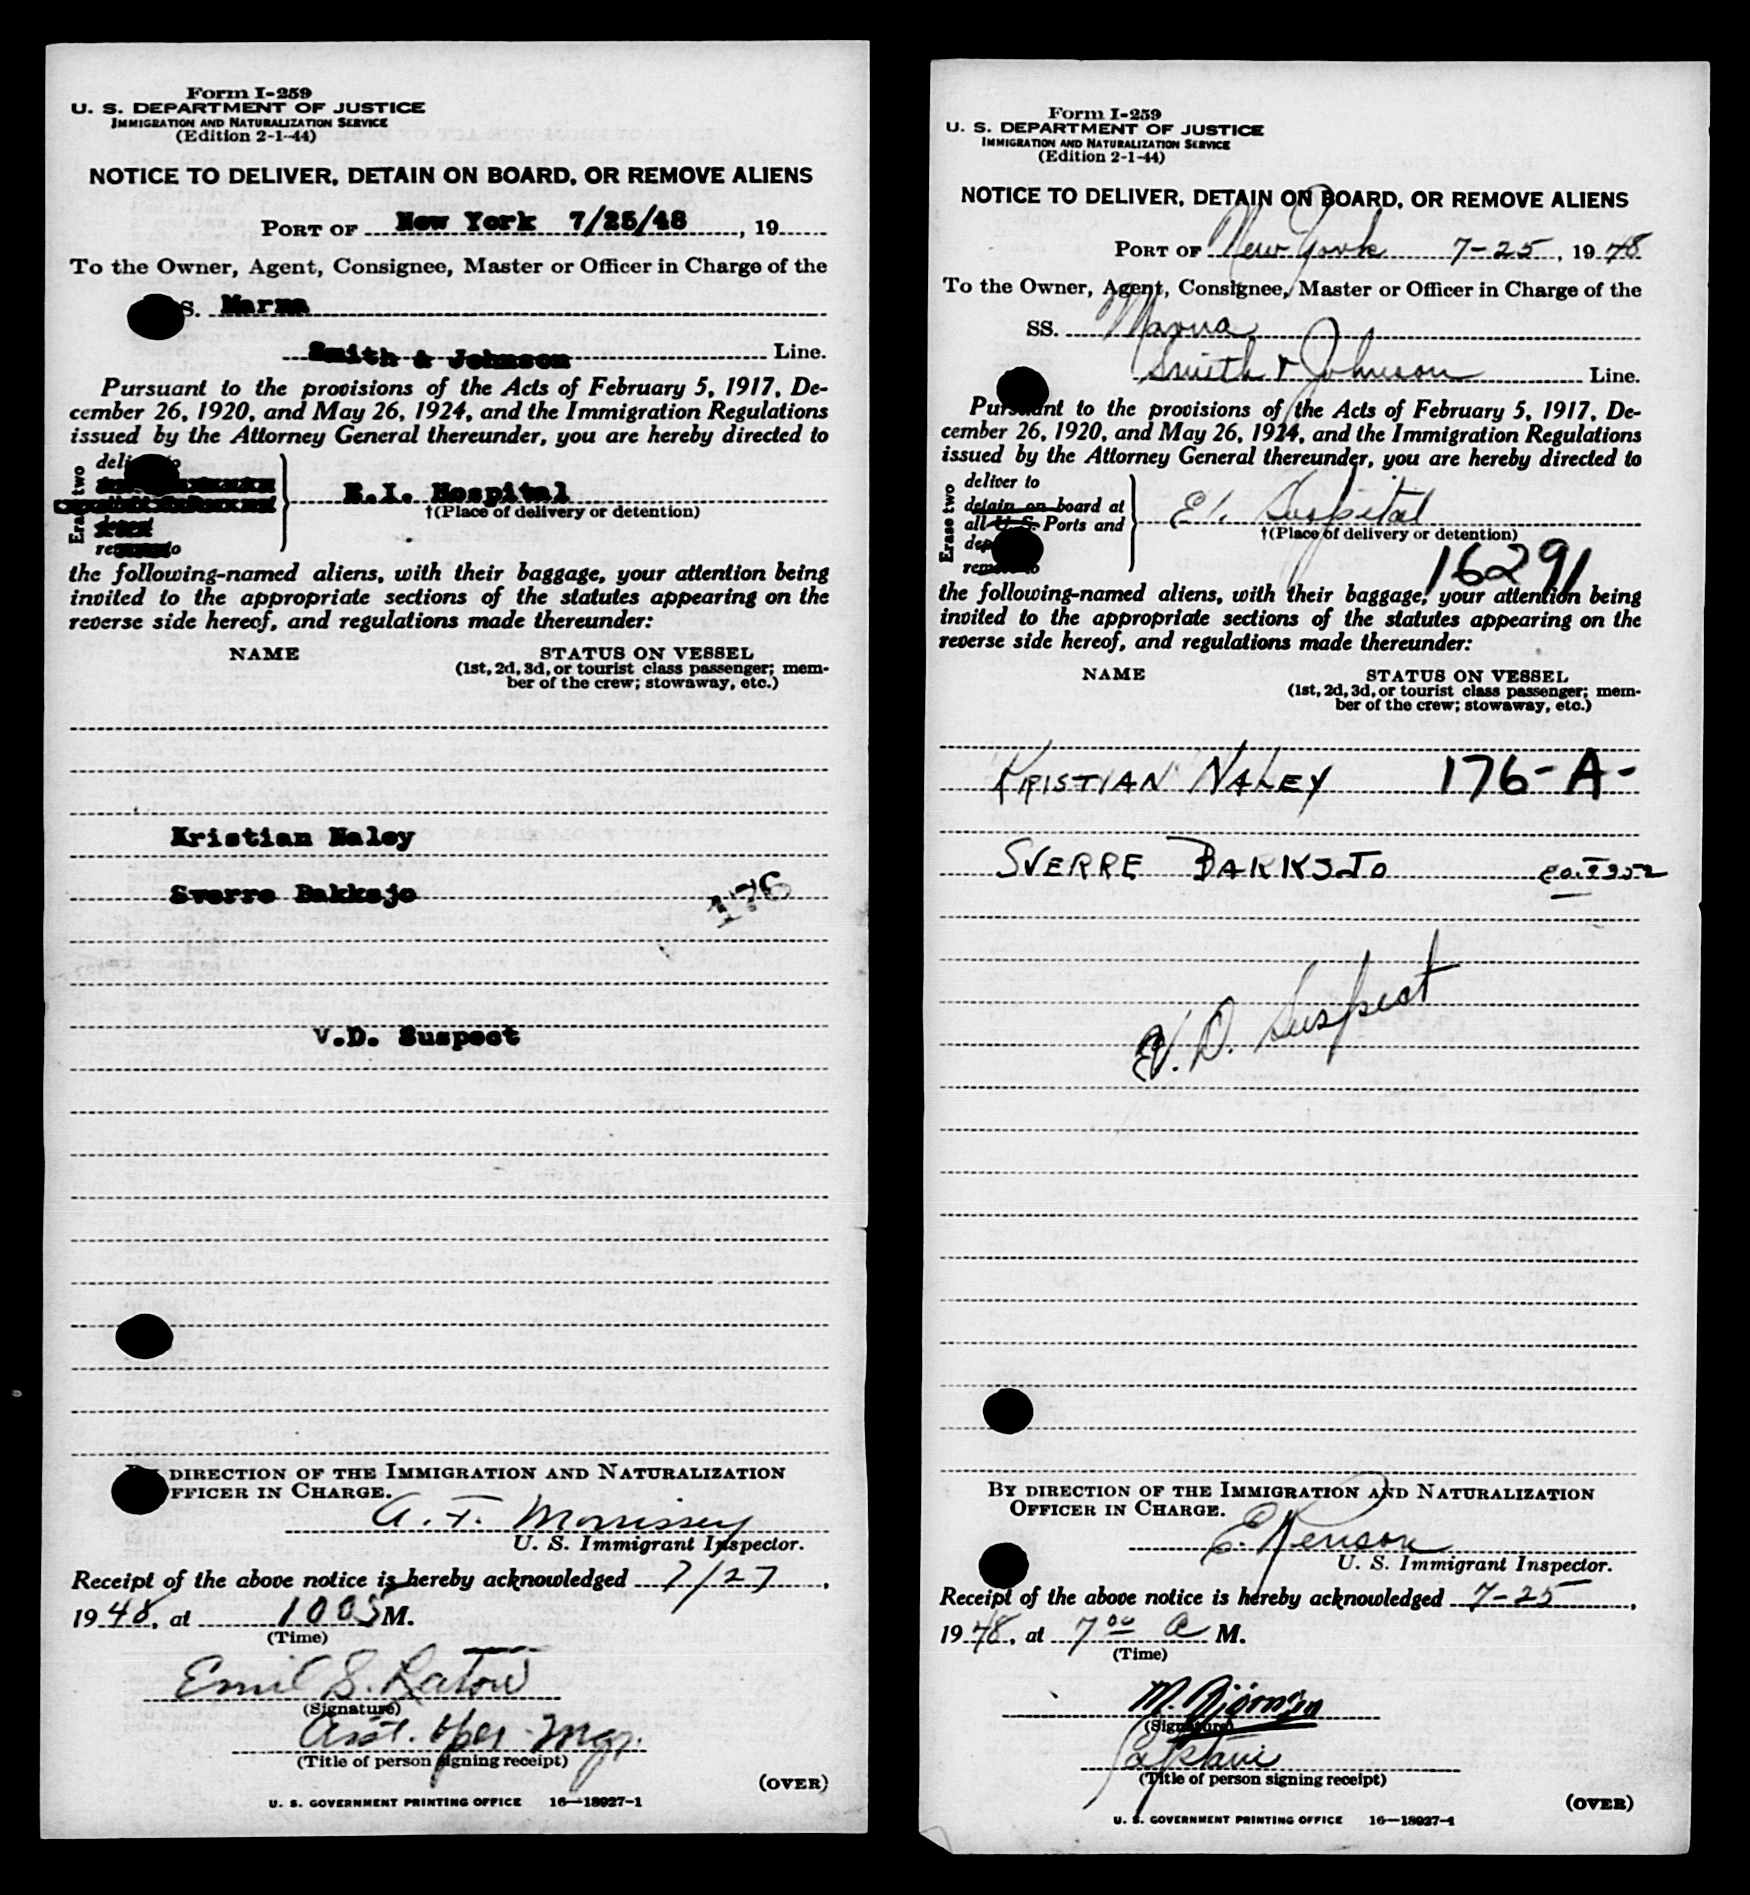 Form I-259
U. S. DEPARTMENT OF JUSTICE
IMMIGRATION AND NATURALIZATION SERVICE
(Edition 2-1-44)
NOTICE TO DELIVER, DETAIN ON BOARD, OR REMOVE ALIENS
PORT OF New York 7/25/48, 19
To the Owner, Agent, Consignee, Master or Officer in Charge of the
S. Marna
Smith & Johnson Line.
Pursuant to the provisions of the Acts of February 5, 1917, De-
cember 26, 1920, and May 26, 1924, and the Immigration Regulations
issued by the Attorney General thereunder, you are hereby directed to
Erase two
E.I. Hospital
†(Place of delivery or detention)
the following-named aliens, with their baggage, your attention being
invited to the appropriate sections of the statutes appearing on the
reverse side hereof, and regulations made thereunder:
NAME STATUS ON VESSEL
(1st, 2d, 3d, or tourist class passenger; mem-
ber of the crew; stowaway, etc.)
Kristian Naley
Sverre Bakksjo 176
V.D. Suspect
DIRECTION OF THE IMMIGRATION AND NATURALIZATION
FFICER IN CHARGE.
A. F. Morrissey
U. S. Immigrant Inspector.
Receipt of the above notice is hereby acknowledged 7/27,
1948, at 1005 M.
(Time)
Emil S.
(Signature)
Asst. Oper. Mgr.
(Title of person signing receipt)
(OVER)
U. S. GOVERNMENT PRINTING OFFICE 16—18927-1
Form I-259
U. S. DEPARTMENT OF JUSTICE
IMMIGRATION AND NATURALIZATION SERVICE
(Edition 2-1-44)
NOTICE TO DELIVER, DETAIN ON BOARD, OR REMOVE ALIENS
PORT OF New York 7-25, 1948
To the Owner, Agent, Consignee, Master or Officer in Charge of the
SS. Marna
Smith & Johnson Line.
Pursuant to the provisions of the Acts of February 5, 1917, De-
cember 26, 1920, and May 26, 1924, and the Immigration Regulations
issued by the Attorney General thereunder, you are hereby directed to
Erase two
deliver to
detain on board at
all U. S. Ports and
E.I. Hospital
†(Place of delivery or detention)
16291
the following-named aliens, with their baggage, your attention being
invited to the appropriate sections of the statutes appearing on the
reverse side hereof, and regulations made thereunder:
NAME STATUS ON VESSEL
(1st, 2d, 3d, or tourist class passenger; mem-
ber of the crew; stowaway, etc.)
KRISTIAN NALEY 176-A-
SVERRE BAKKSJO
V.D. Suspect
BY DIRECTION OF THE IMMIGRATION AND NATURALIZATION
OFFICER IN CHARGE.
E.
U. S. Immigrant Inspector.
Receipt of the above notice is hereby acknowledged 7-25,
1948, at 7 00 A M.
(Time)
M.
(Signature)
Captain
(Title of person signing receipt)
(OVER)
U. S. GOVERNMENT PRINTING OFFICE 16—18927-1